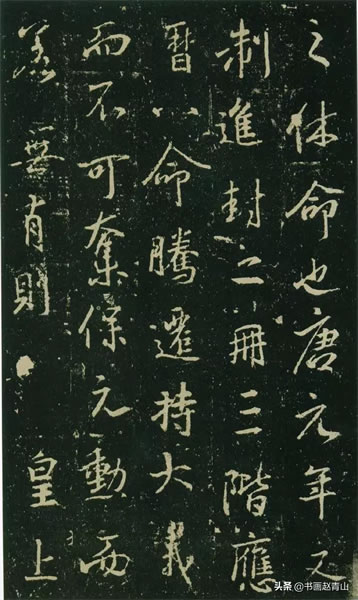 之休命也唐元年又
制進封二冊三階應
曆以命騰遷持大義
而不可奪保元勳而
無有則 皇上
头条 @书画赵青山